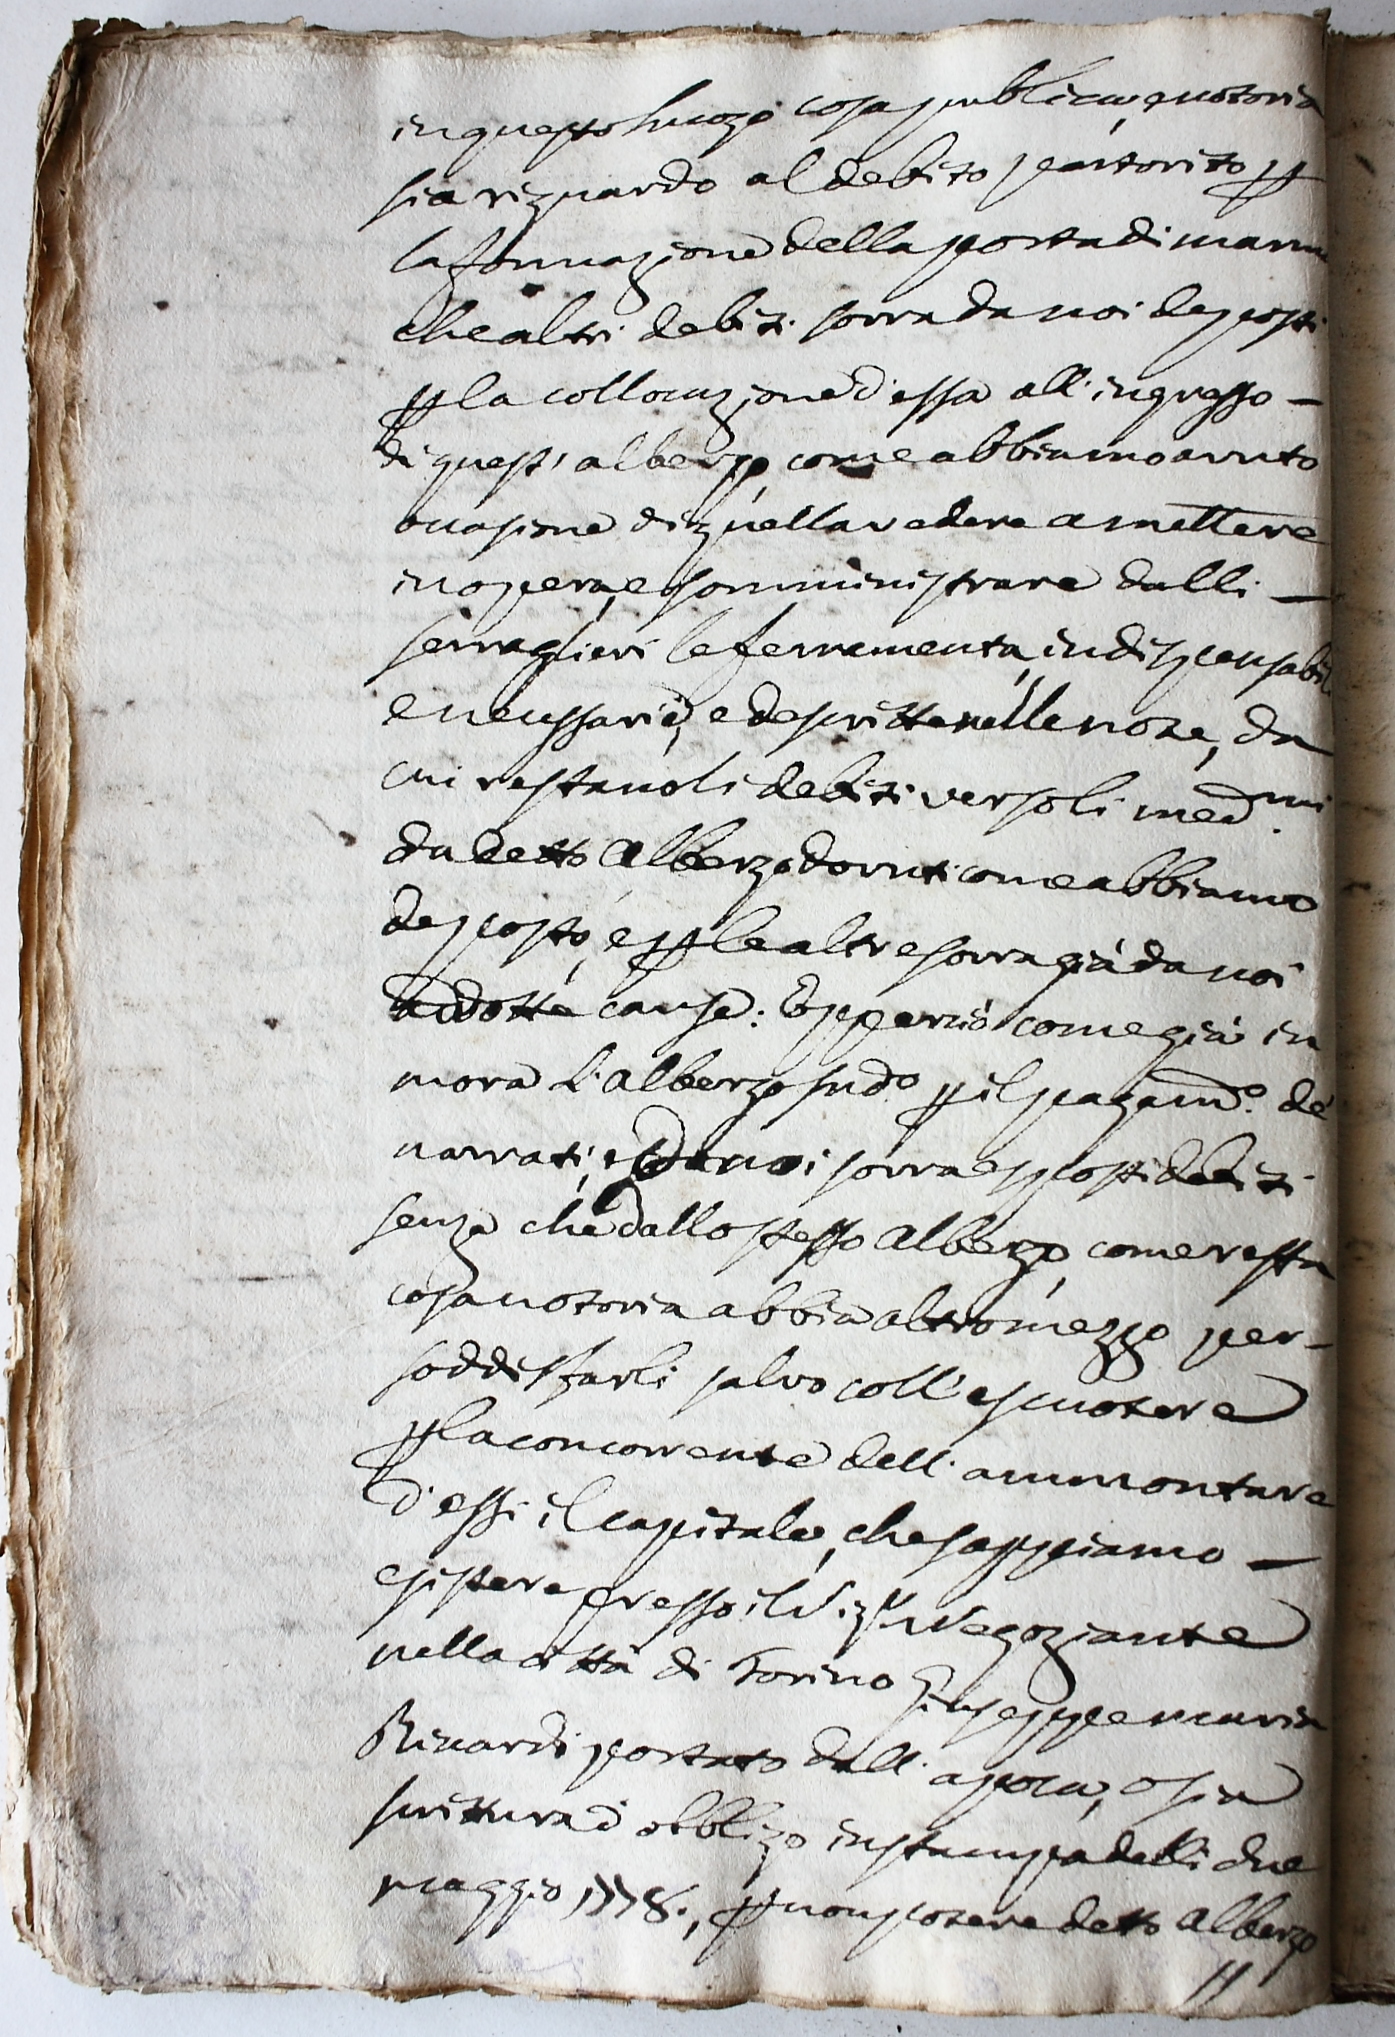 in questo luogo cosa publica, e notoria
sia riguardo al debito partorito p
la formazione della porta di marm
che altri debiti sovra da noi deposti
p la collocazione d'essa all'ingresso -
di quest'albergo, come abbiamo avuto
occasione di quella vedere a mettere
in opera, e somministrare dalli -
serraglieri le ferramenta, indispensabili
e necessarie, e descritte nelle note, da
cui restano li debiti verso li med.mi
da detto Albergo dovuti come abbiamo
deposto, e p le altre sovra già da noi
addotte cause: Epperciò come già in
mora l'albergo sud.o p il pagam.o de
narrati, e da noi sovra esposti debiti
senza che dallo stesso Albergo, come resta
cosa notoria abbia altro mezzo per -
soddisfarli salvo coll'escuotere
p la concorrente dell'ammontare
d'essi il capitale, che sappiamo -
esistere presso il Sig.r Negoziante
nella città di Torino Giuseppe Maria
Ricardi portato dall'apoca, o sia
scrittura d'obbligo in stampa delli due
maggio 1778., p non potere detto Albergo